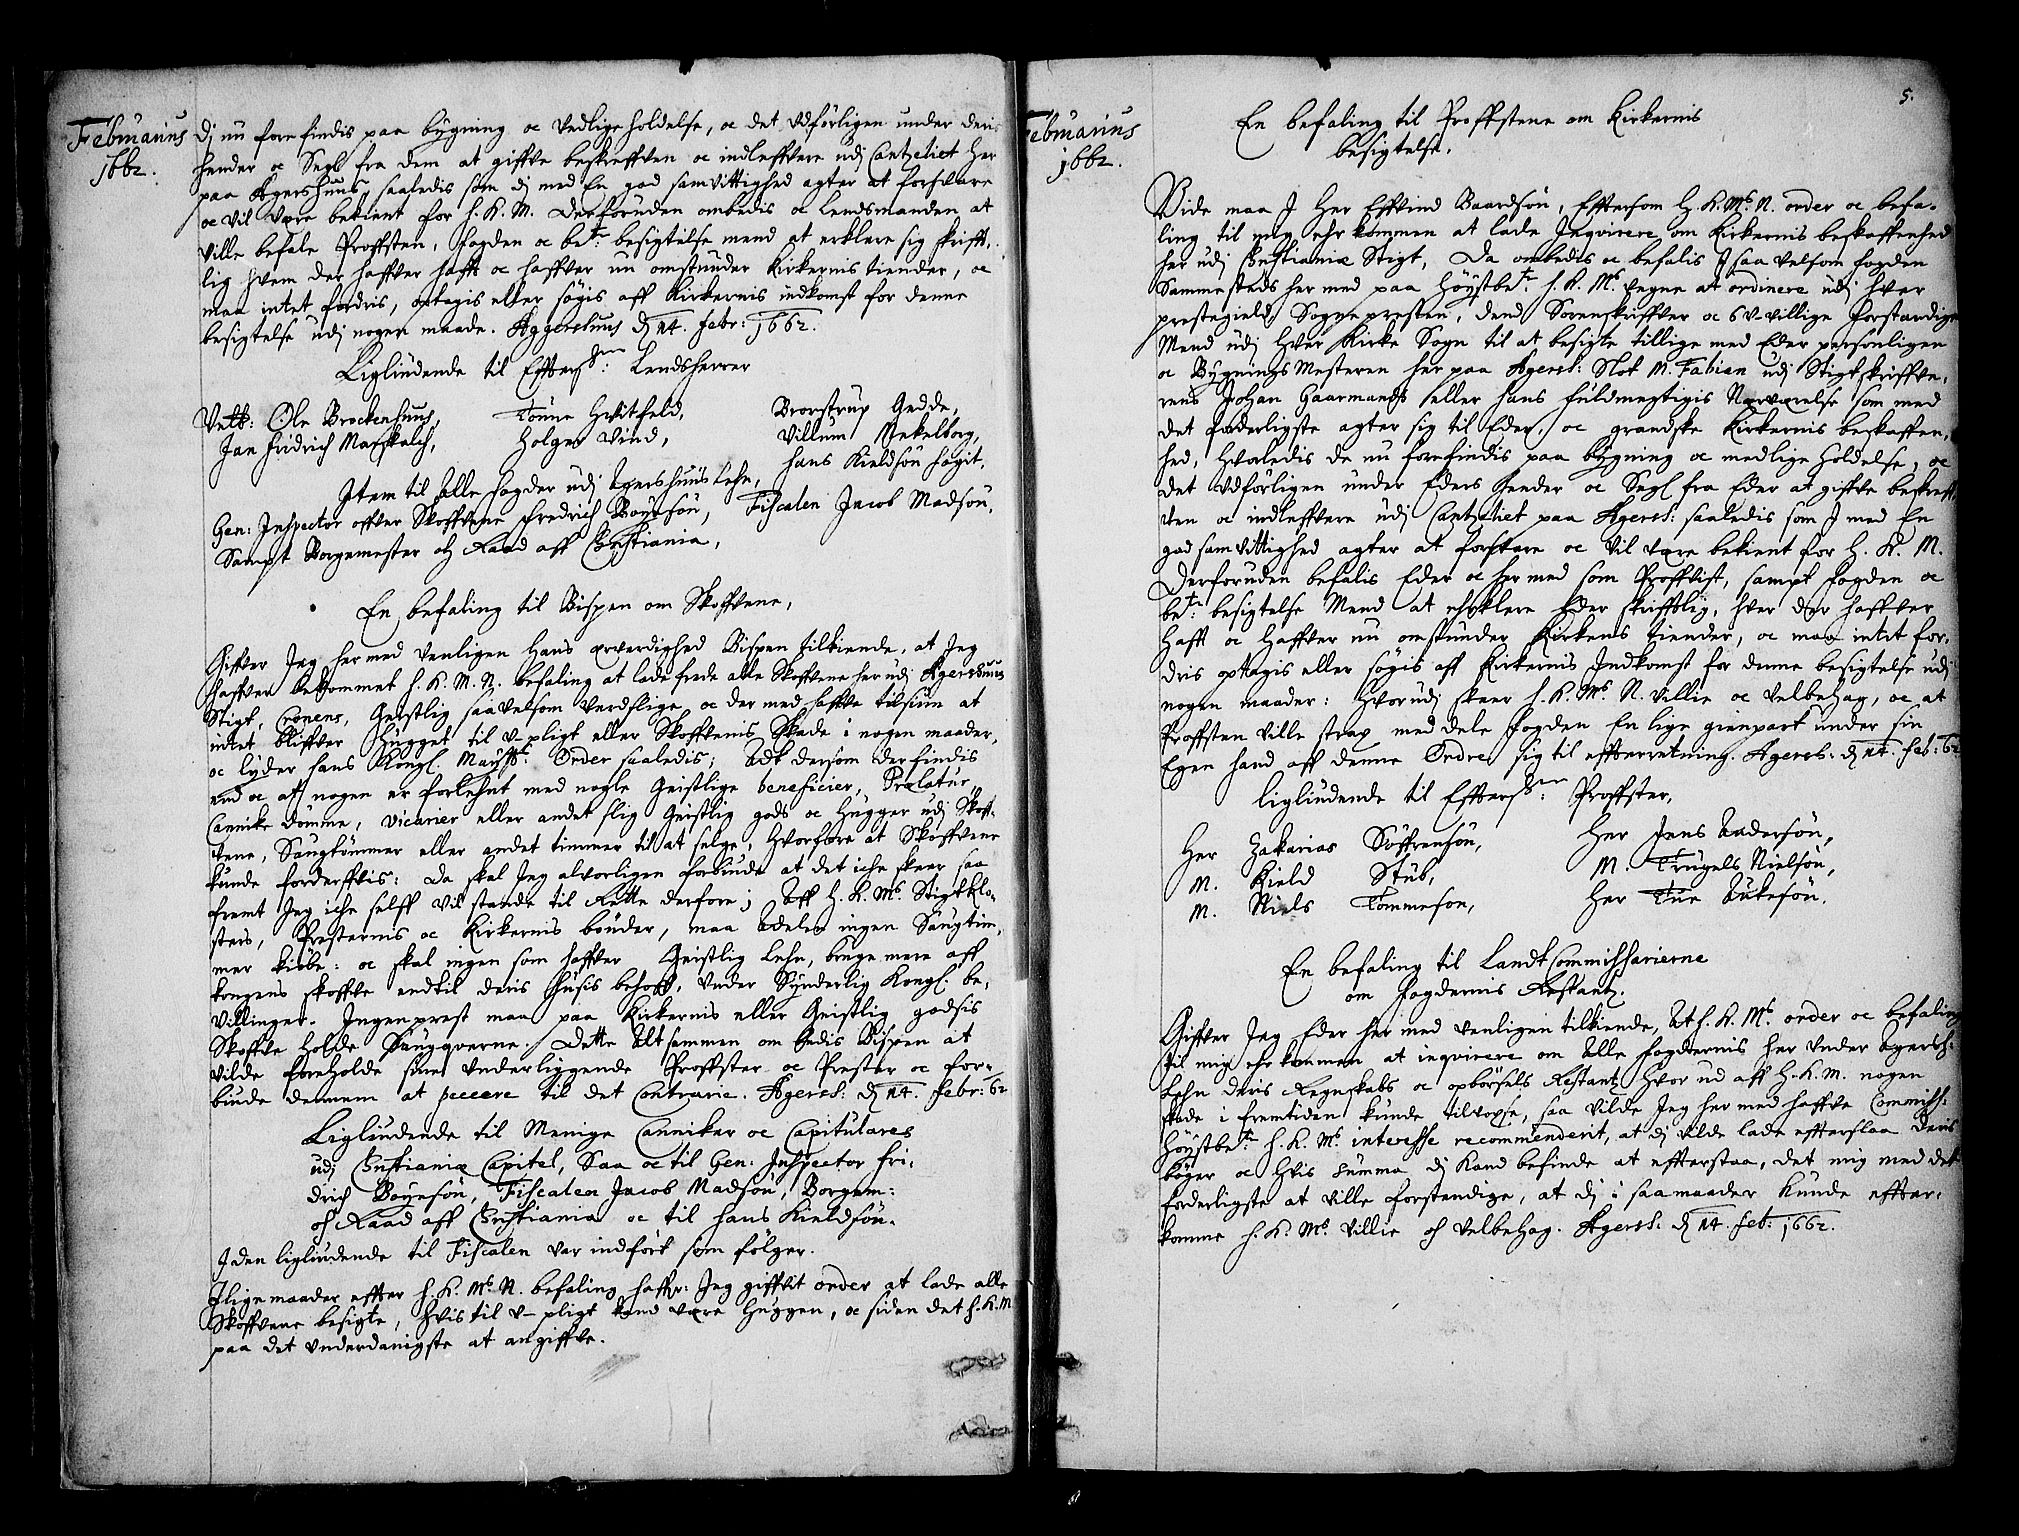 Februarius
1662.
Dj nu forefindis paa bÿgning oc vedligeholdelse, oc det udførligen under deris
hender oc Segl fra dem at giffve beskreffven oc indleffvere udj Cantzeliet her
paa Agershuus, saaledis som dj med En god samvittighed agter at forsvare
oc vil være bekient for H. K. M. Derforuden ombedis oc Lendsmanden at
ville befale Proffsten, fogden oc bete: besigtelse mend at erklere sig skrifft-
lig hvem der haffver hafft oc haffver nu omstunder Kirkernis tiender, oc
maa intet fordris, optagis eller søgis aff Kirkernis indkomst for denne
besigtelse udj nogen maade. Aggershuus d 14. febr: 1662.
Liglüdende til Effterschne: Lendsherrer
Velb: Ole Brockenhuus,
Tønne Hvitfeld,
Brorstrup Gedde,
Jan Fridrich Marskalch,
Holger Vind,
Villum Mekelborg,
Hans Kieldsøn fogit.
Item til Alle fogder udj Agershuus Lehn,
Gen: Inspector offver Skoffvene Fredrich Boÿesøn,
Fiscalen Jacob Madsøn,
Sampt Borgemester och Raad aff Christiania,
En befaling til Bispen om Skoffvene,
Giffver Jeg hermed venligen Hans ærverdighed Bispen tilkiende, at Jeg
haffver bekommet H. K. M. N. befaling at lade frede alle Skoffvene her udj Agershuus
Stigt, Cronens, Geistlig saavelsom verdslige, oc dermed haffve tilsiun at
intet bliffver hugget til u-pligt eller Skoffvenis Skade i nogen maader,
oc lÿder hans Kongl. Maÿstt: Order saaledis; Adt dersom der findis
end oc at nogen er forlehnt med nogle Geistlige beneficier, Prælatur,
Cannike dømme, vicarier eller andet slig Geistlig gods oc hugger udj Skoff-
vene, Saugtømmer eller andet timmer til at selge, hvorfore at Skoffvene
kunde forderffvis: Da skal Jeg alvorligen forbiude at det iche skeer saa
fremt Jeg iche selff vil stande til Rette derfore; Aff H. K. Ms. Stigt Klo-
sters, Presternis oc Kirkernis bønder, maa Adelen ingen Saugtim-
mer kiøbe: oc skal ingen som haffver Geistlig Lehn, bruge mere aff
kongens skoffve endtil deris Husis behoff, under Sÿnderlig Kongl. be-
villinger. Ingen prest maa paa Kirkernis eller Geistlig godsis
Skoffve holde Saugqverne. Dette Alt sammen ombedis Bispen at
vilde foreholde sine underliggende Proffster oc Prester oc for-
biude dennem at peccere til det Contrarie. Agersh: d 14. Febr: 62
Liglüdende til Menige Canniker oc Capitulares
udj Christianiæ Capitel, Saa oc til Gen: Inspector Fri-
drich Boÿesøn, Fiscalen Jacob Madsøn, Borgem:
oc Raad aff Christiania oc til Hans Kieldsøn.
I den liglüdende til Fiscalen var indført som følger.
Iligemaader effter H. K. Ms. N. befaling haffr: Jeg giffvit order at lade alle
Skoffvene besigte, Hvis til u-pligt kand være huggen, oc siden det H. K. M
paa det underdanigste at angiffve.
5.
Februarius
1662.
En befaling til Proffstene om Kirkernis
besigtelse.
Vide maa J Her Effvind Baardsøn, Efftersom H. K. Ms. N. order oc befa-
ling til mig ehr kommen at lade Inqvirere om Kirkernis beskaffenhed
her udj Christianiæ Stigt, Da ombedis oc befalis J saa velsom fogden
Sammesteds hermed paa Høÿstbete: H. K. Ms. vegne at ordinere udj hver
prestegield Sognepresten, Dend Sorenskriffver oc 6 u-villige forstandige
Mend udj hver Kirke Sogn til at besigte tillige med Eder personligen
oc Bÿgnings Mesteren her paa Agersh: Slot M. Fabian udj Stigtskriffve-
rens Johan Gaarmands eller hans fuldmegtigis Nærværelse som med
det forderligste agter sig til Eder, oc grandske Kirkernis beskaffen-
hed, Hvorledis de nu forefindis paa bÿgning oc vedlige holdelse, oc
det udførligen under Eders Hender oc Segl fra Eder at giffve beskreff-
ven oc indleffvere udj Cantzeliet paa Agersh: saaledis som J med En
god samvittighed agter at forsvare oc vil være bekient for H. K. M.
Derforuden befalis Eder oc hermed som Proffvist, sampt fogden oc
bete: besigtelse Mend at erklere Eder skrifftlig, hver der haffver
Hafft oc haffver nu omstunder Kirkens tiender, oc maa intet for-
dris optagis eller søgis aff Kirkernis Indkomst for denne besigtelse udj
nogen maader: Hvorudj skeer H. K. Ms. N. villie oc velbehag, oc at
Proffsten ville strax meddele fogden En lige gienpart under sin
Egen hand aff denne Ordre, sig til effterretning. Agersh: d 14. Feb: 62
liglüdende til Effterschne: Proffster,
Her Zakarias Søffrensøn,
Her Jens Andersøn,
M. Kield Stub,
M. Trugels Nielsøn,
M. Niels Tommeson,
Her Tue Aukesøn.
En befaling til Landt Commissarierne
om fogdernis Restantz.
Giffver Jeg Eder hermed venligen tilkiende, At H. K. Ms. order oc befaling
til mig ehr kommen at inqvirere om Alle fogdernis her under Agersh:
Lehn deris Regnskabs oc opbørsels Restantz Hvor ud aff H. K. M. nogen
skade i fremtiden kunde tilvoxe, saa vilde Jeg hermed haffve Commiss:
Høÿstbete: H. K. Ms. interesse recommenderit, at dj vilde lade effterslaa deris
bøger oc Hvis summa dj kand befinde at effterstaa, det mig med det
forderligste at ville forstendige, at dj i saa maader kunde effter-
komme H. K. Ms. villie oc velbehag. Agersh: d 14. Feb: 1662.